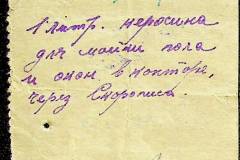 1 литр. керосина
для мойки пола
и окон в конторе,
через Скорописа.